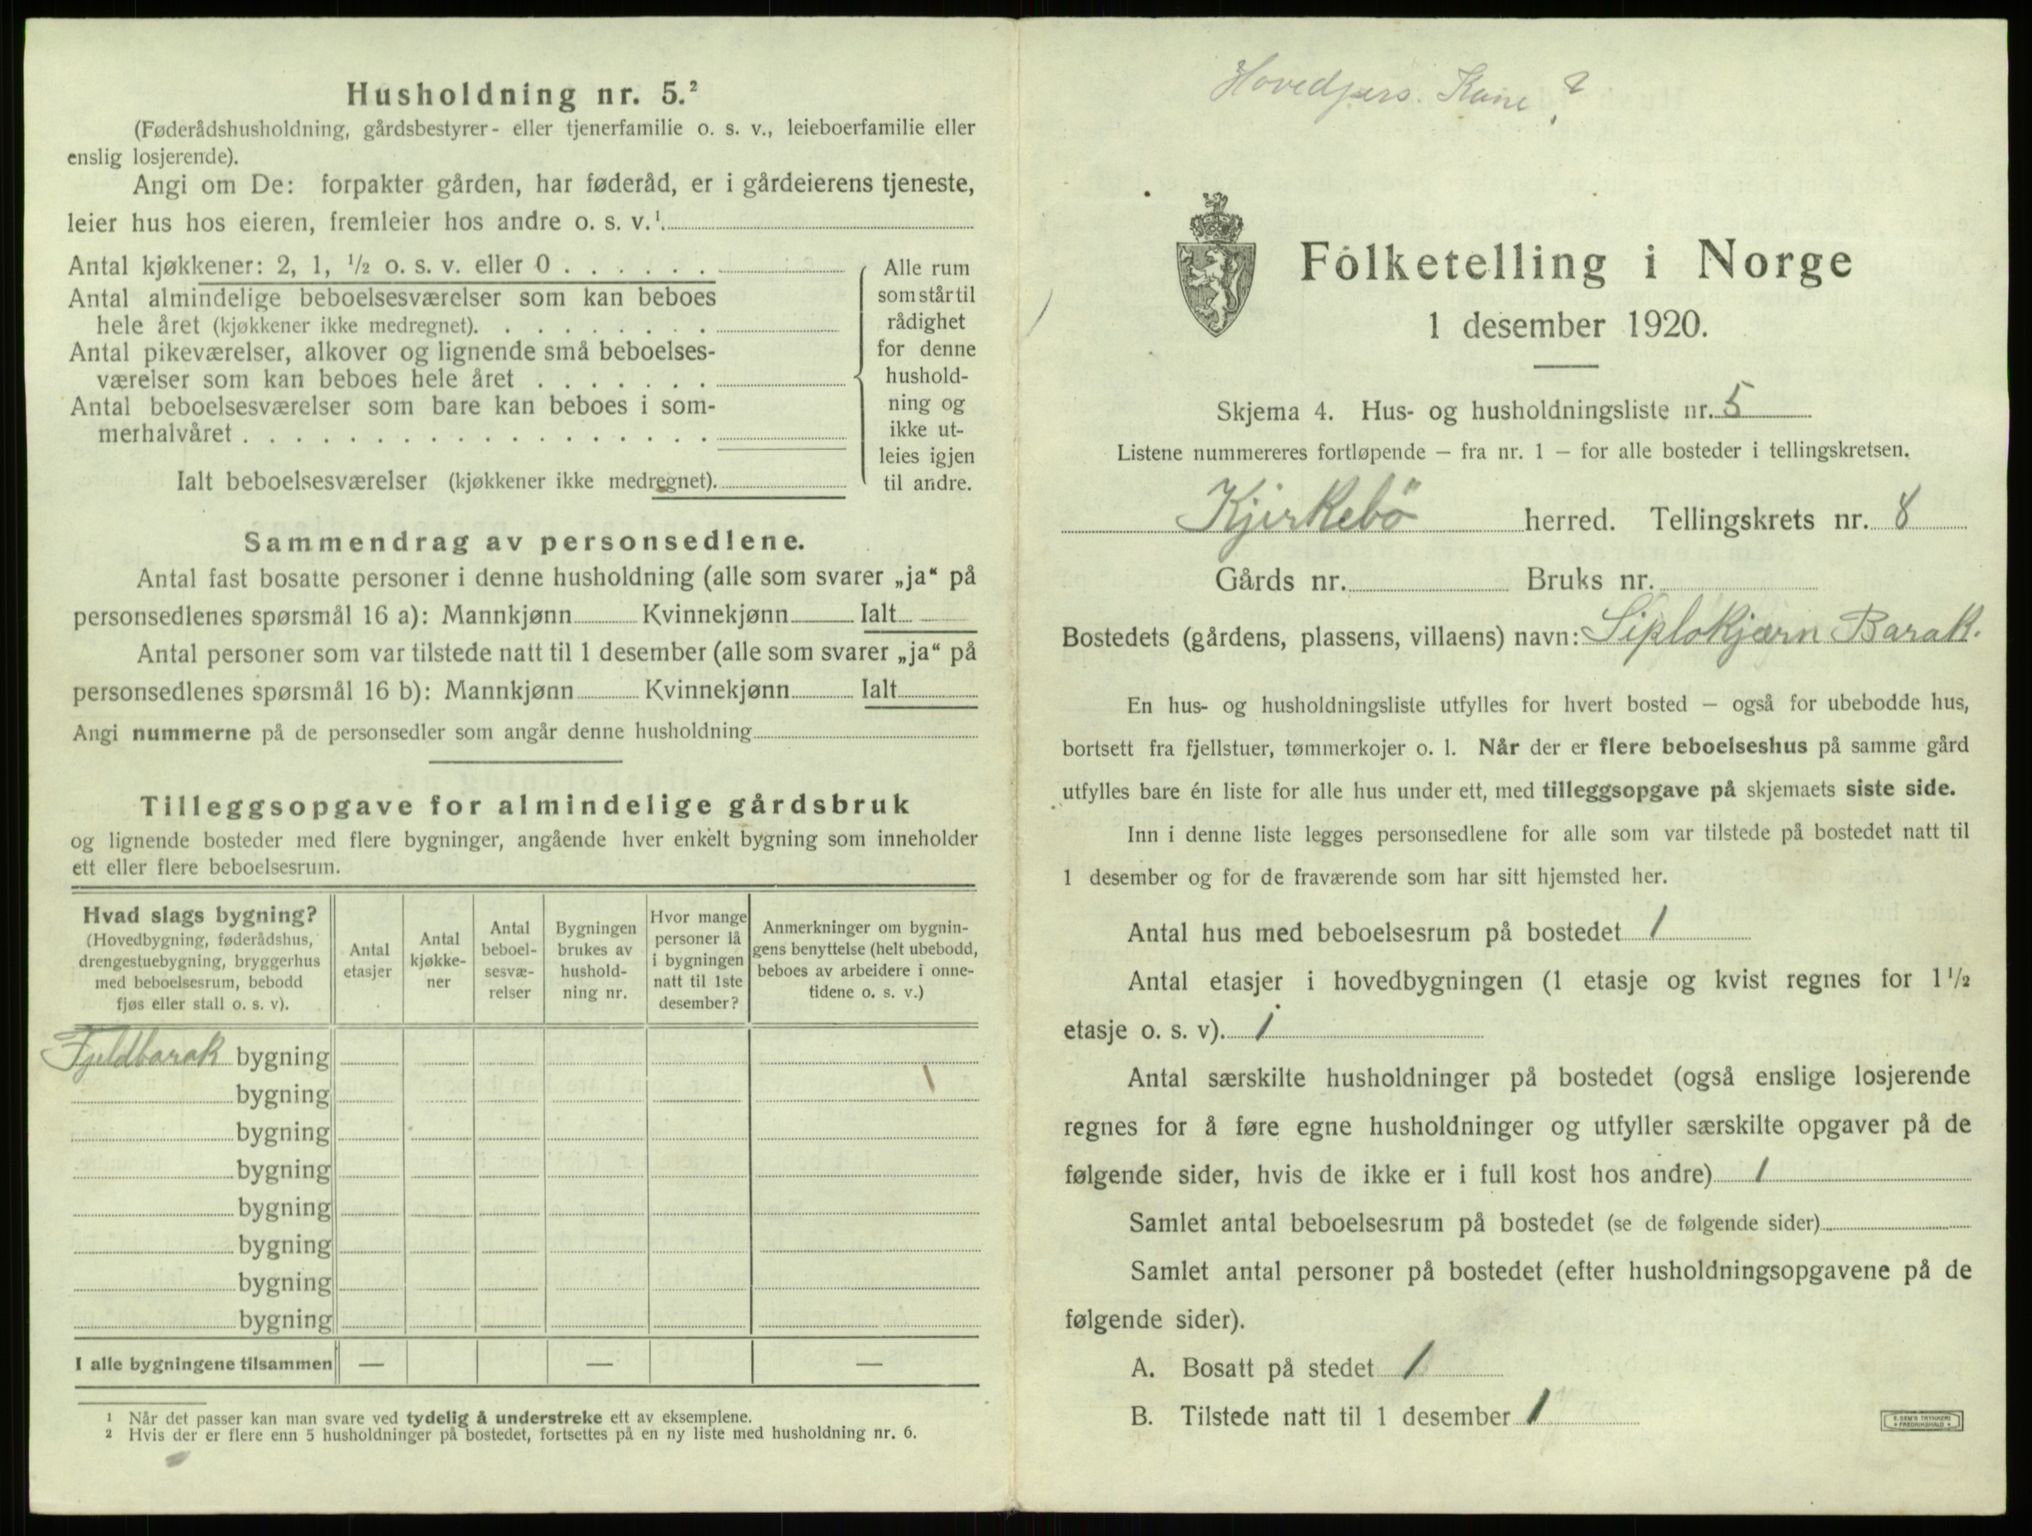 Husholdning nr. 5.²
(Føderådshusholdning, gårdsbestyrer- eller tjenerfamilie o. s. v., leieboerfamilie eller
enslig losjerende).
Angi om De: forpakter gården, har føderåd, er i gårdeierens tjeneste,
leier hus hos eieren, fremleier hos andre o. s. v.¹.
Antal kjøkkener: 2, 1, ½ o. s. v. eller 0 . . . . . .
Antal almindelige beboelsesværelser som kan beboes
hele året (kjøkkener ikke medregnet). . . . . . . . .
Antal pikeværelser, alkover og lignende små beboelses-
værelser som kan beboes hele året . . . . . . .
Antal beboelsesværelser som bare kan beboes i som-
merhalvåret . . . . . . . . . . . . . . . . . .
Ialt beboelsesværelser (kjøkkener ikke medregnet).
Alle rum
som står til
rådighet
for denne
hushold-
ning og
ikke ut-
leies igjen
til andre.
Sammendrag av personsedlene.
Antal fast bosatte personer i denne husholdning (alle som svarer „ja“ på
personsedlenes spørsmål 16 a): Mannkjønn Kvinnekjønn Ialt
Antal personer som var tilstede natt til 1 desember (alle som svarer „ja“ på
personsedlenes spørsmål 16 b): Mannkjønn Kvinnekjønn Ialt
Angi nummerne på de personsedler som angår denne husholdning
Tilleggsopgave for almindelige gårdsbruk
og lignende bosteder med flere bygninger, angående hver enkelt bygning som inneholder
ett eller flere beboelsesrum.
Hvad slags bygning?
(Hovedbygning, føderådshus,
drengestuebygning, bryggerhus
med beboelsesrum, bebodd
fjøs eller stall o. s. v).
Antal
etasjer
Antal
kjøkke-
ner
Antal
beboel-
sesvæ-
relser
Bygningen
brukes av
hushold-
ning nr.
Hvor mange
personer lå
i bygningen
natt til 1ste
desember?
Anmerkninger om bygnin-
gens benyttelse (helt ubebodd,
beboes av arbeidere i onne-
tidene o. s. v.)
Fjeldbarak bygning
bygning
bygning
bygning
bygning
bygning
bygning
bygning
I alle bygningene tilsammen — — —
¹ Når det passer kan man svare ved tydelig å understreke ett av eksemplene.
² Hvis der er flere enn 5 husholdninger på bostedet, fortsettes på en ny liste med husholdning nr. 6.
Hovedpers. Kone ?
Folketelling i Norge
1 desember 1920.
Skjema 4. Hus- og husholdningsliste nr. 5
Listene nummereres fortløpende — fra nr. 1 — for alle bosteder i tellingskretsen.
Kjirkebö herred. Tellingskrets nr. 8
Gårds nr. Bruks nr.
Bostedets (gårdens, plassens, villaens) navn: Siplokjærn Barak.
En hus- og husholdningsliste utfylles for hvert bosted — også for ubebodde hus,
bortsett fra fjellstuer, tømmerkojer o. l. Når der er flere beboelseshus på samme gård
utfylles bare én liste for alle hus under ett, med tilleggsopgave på skjemaets siste side.
Inn i denne liste legges personsedlene for alle som var tilstede på bostedet natt til
1 desember og for de fraværende som har sitt hjemsted her.
Antal hus med beboelsesrum på bostedet 1
Antal etasjer i hovedbygningen (1 etasje og kvist regnes for 1½
etasje o. s. v). 1
Antal særskilte husholdninger på bostedet (også enslige losjerende
regnes for å føre egne husholdninger og utfyller særskilte opgaver på de
følgende sider, hvis de ikke er i full kost hos andre) 1
Samlet antal beboelsesrum på bostedet (se de følgende sider)
Samlet antal personer på bostedet (efter husholdningsopgavene på de
følgende sider).
A. Bosatt på stedet 1
B. Tilstede natt til 1 desember 1
E. SEM'S TRYKKERI
FREDRIKSHALD